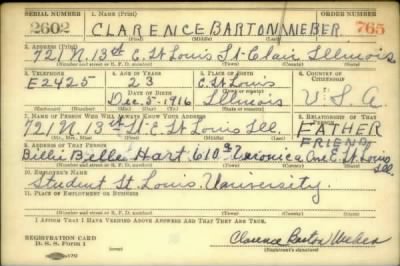 SERIAL NUMBER 1. NAME (Print) ORDER NUMBER
2602 CLARENCE BARTON WEBER 765
(First) (Middle) (Last)
2. ADDRESS (Print)
721 N. 13th E. St Louis St. Clair Illinois
(Number and street or R. F. D. number) (Town) (County) (State)
3. TELEPHONE 4. AGE IN YEARS 5. PLACE OF BIRTH 6. COUNTRY OF CITIZENSHIP
E2425 23 E. St Louis
DATE OF BIRTH (Town or county)
Dec. 5-1916 Illinois U.S.A
(Mo.) (Day) (Yr.) (State or country)
7. NAME OF PERSON WHO WILL ALWAYS KNOW YOUR ADDRESS 8. RELATIONSHIP OF THAT PERSON
721 N. 13th St. E. St Louis Ill. FATHER
(Mr., Mrs., Miss) (First) (Middle) (Last) FRIEND
9. ADDRESS OF THAT PERSON
Hart 610 Veronica E. St. Louis Ill
(Number and street or R. F. D. number) (Town) (County) (State)
10. EMPLOYER'S NAME
Student St. Louis University
11. PLACE OF EMPLOYMENT OR BUSINESS
(Number and street or R. F. D. number) (Town) (County) (State)
I AFFIRM THAT I HAVE VERIFIED ABOVE ANSWERS AND THAT THEY ARE TRUE.
REGISTRATION CARD
D. S. S. Form 1 Clarence Barton Weber
(Registrant's signature)